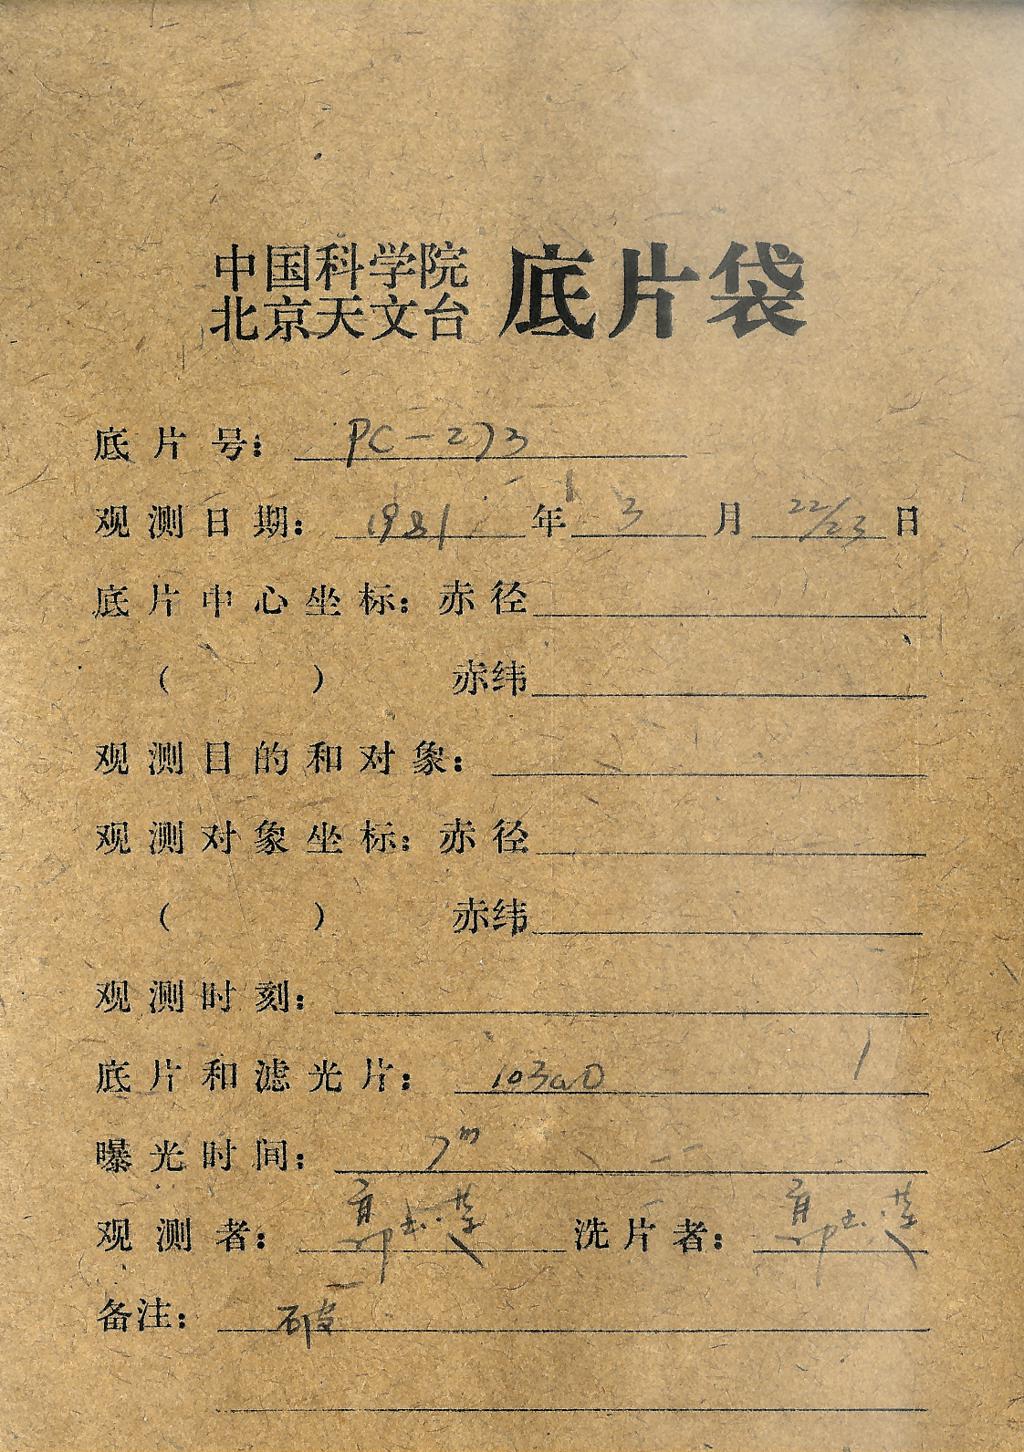 中国科学院
北京天文台 底片袋
底片号: PC-273
观测日期: 1981年3月22/23日
底片中心坐标: 赤径
( ) 赤纬
观测目的和对象:
观测对象坐标: 赤径
( ) 赤纬
观测时刻:
底片和滤光片: 103aO
曝光时间: 7m
观测者: 洗片者:
备注: 破